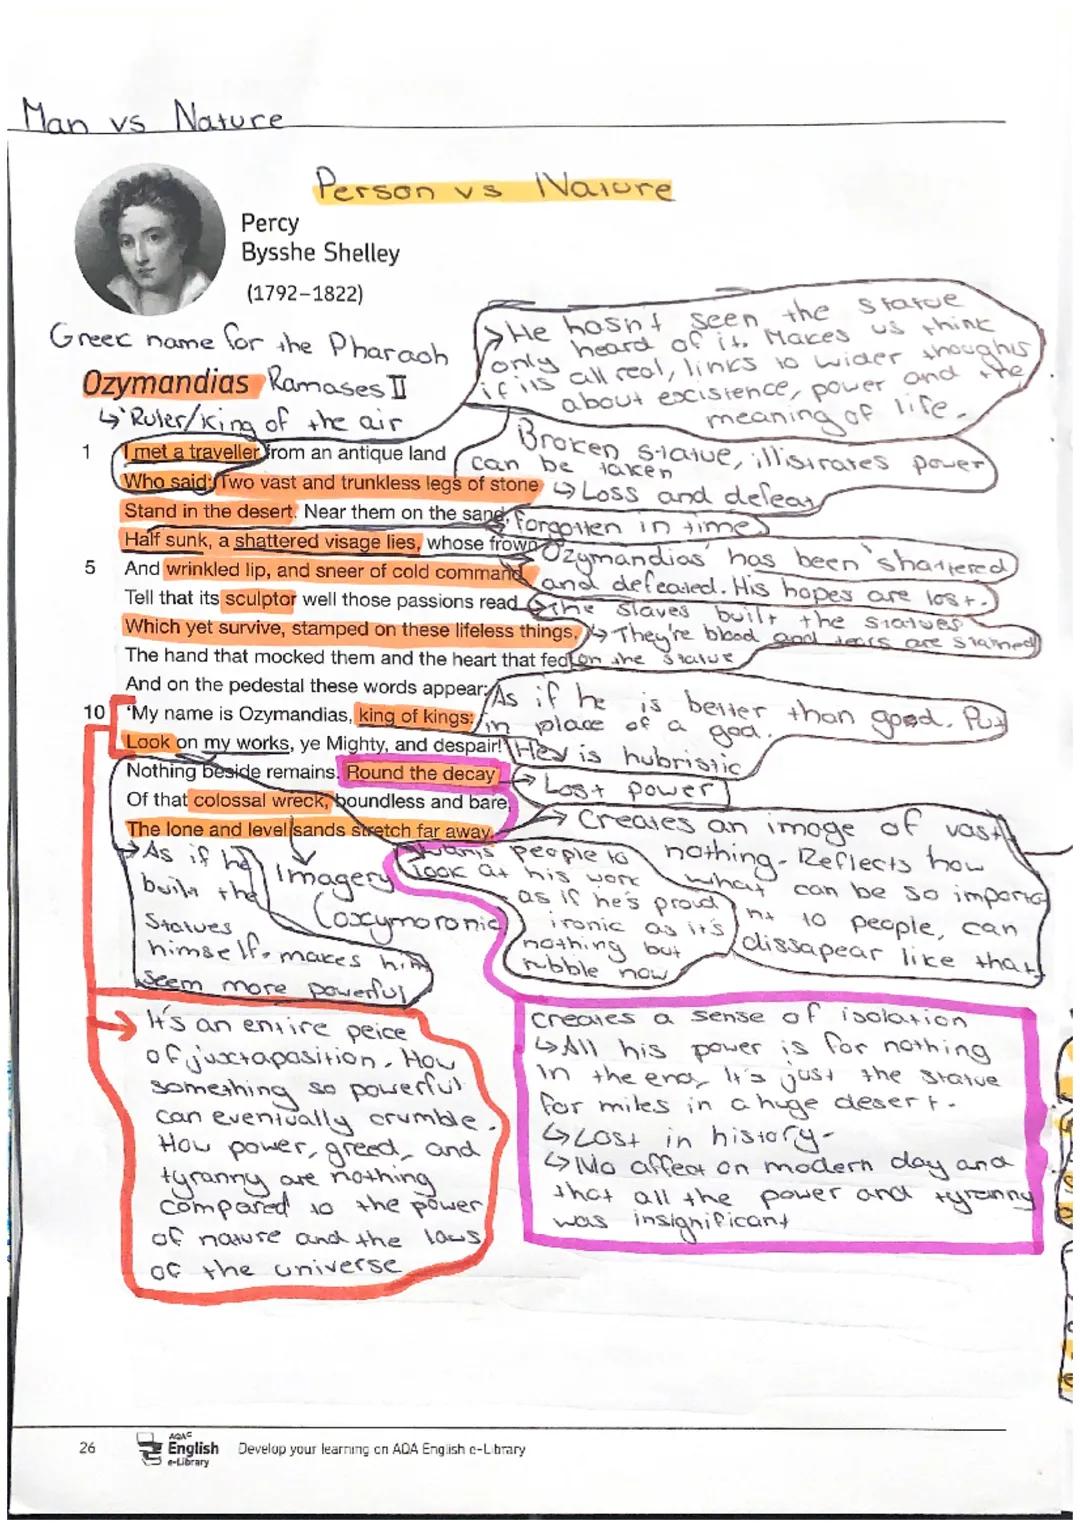 Man vs Nature
Person vs Nature
Percy
Bysshe Shelley
(1792–1822)
Greek name for the Pharaoh
Ozymandias Ramases II
↳ 'Ruler/king of the air
→ He hasn't seen the statue
only heard of it. Makes us think
if its all real, links to wider thoughts
about excistence, power and the
meaning of life.
1 I met a traveller from an antique land
Who said: Two vast and trunkless legs of stone
Stand in the desert. Near them on the sand,
Half sunk, a shattered visage lies, whose frown
5 And wrinkled lip, and sneer of cold command
Tell that its sculptor well those passions read
Which yet survive, stamped on these lifeless things,
The hand that mocked them and the heart that fed
And on the pedestal these words appear:
10 'My name is Ozymandias, king of kings:
Look on my works, ye Mighty, and despair!'
Nothing beside remains. Round the decay
Of that colossal wreck, boundless and bare,
The lone and level sands stretch far away.
Broken statue, illistrates power
can be taken
↳ Loss and defeat
forgotten in time
Ozymandias' has been 'shattered
and defeated. His hopes are lost.
→ The slaves built the statues
↳ They're blood and tears are stained
on the statue
As if he is better than good. Put
in place of a god.
He is hubristic
Lost power
→ Creates an image of vast
nothing. Reflects how
what can be so importa
nt to people, can
dissapear like that
→ As if he
built the
statues
himself. makes him
seem more powerful
Imagery
(oxymoronic
Wants people to
look at his work
as if he's proud
ironic as it's
nothing but
rubble now
→ It's an entire peice
of juxtaposition. How
something so powerful
can eventually crumble.
How power, greed, and
tyranny are nothing
compared to the power
of nature and the laws
of the universe
Creates a sense of isolation
↳ All his power is for nothing
in the end, It's just the statue
for miles in a huge desert.
↳ Lost in history.
↳ No affect on modern day and
that all the power and tyranny
was insignificant
26
AQA
English
e-Library
Develop your learning on AQA English e-Library